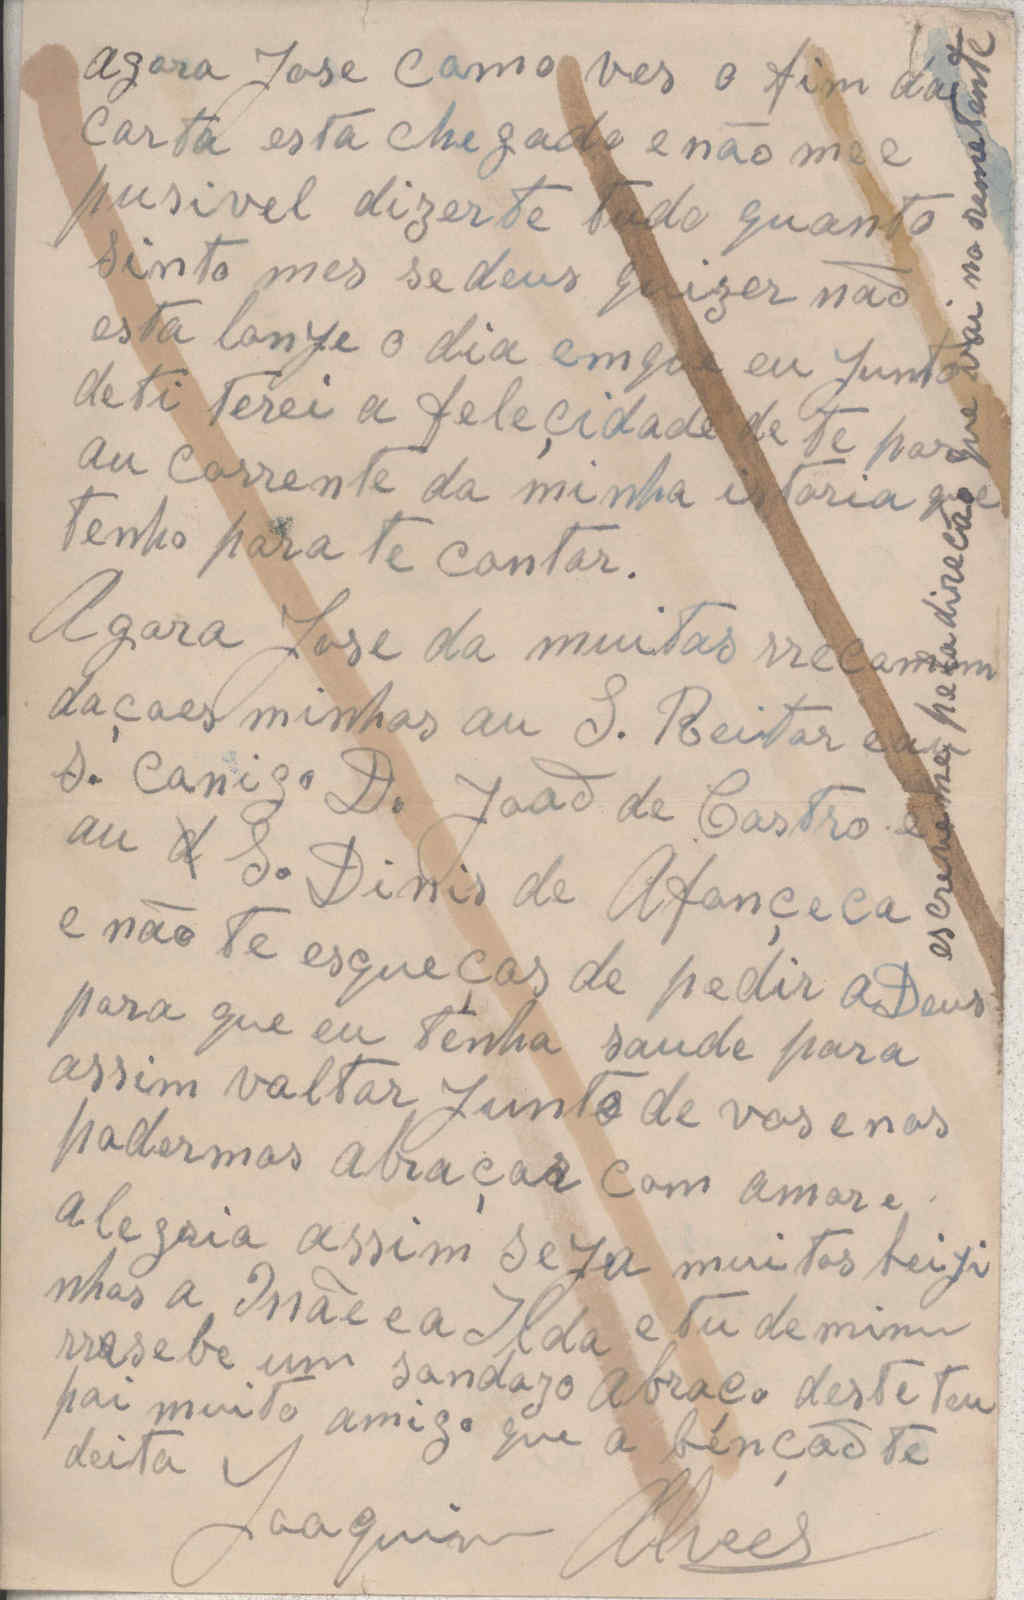 agora Jose como ves o fim da
carta esta chegado e não me e
pusivel dizerte tudo quanto
sinto mes se deus quizer não
esta lonje o dia emque eu Junto
deti terei a feleçidade de te por
au corrente da minha istoria que
tenho para te contar.
Agora Jose da muitas rrecomen
daçoes minhas au S. Reitor e au
s. Conigo D. João de Castro e
au S. Dinis de Afonçeca
e não te esqueças de pedir a Deus
para que eu tenha saude para
assim voltar Junto de vos e nos
podermos abraçar com amor e
alegria assim seja muitos beiji
nhos a Mãe e a Ilda e tu demim
rresebe um sandozo abraço deste teu
pai muito amigo que a bênção te
deita
Joaquim Alves
escreveme pela direcão que vai no remetente